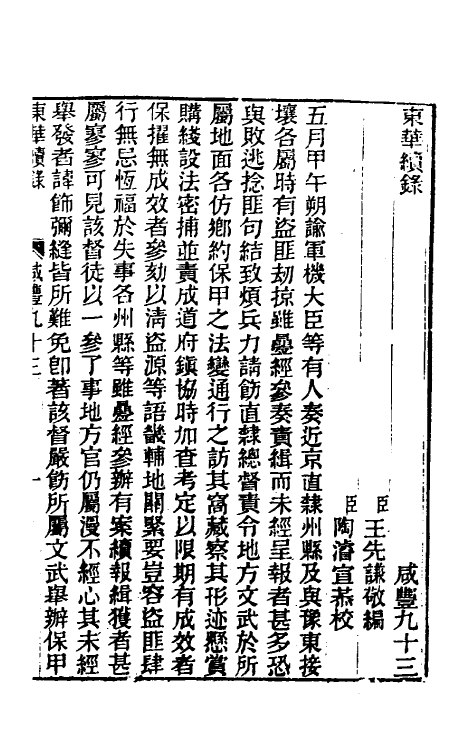 東華續錄
咸豐九十三
臣王先謙敬編
臣陶濬宣恭校
五月甲午朔諭軍機大臣等有人奏近京直隸州縣及與豫東接
壤各屬時有盜匪劫掠雖疊經參奏責緝而未經呈報者甚多恐
與敗逃捻匪句結致煩兵力請飭直隸總督責令地方文武於所
屬地面各仿鄉約保甲之法變通行之訪其窩藏察其形迹懸賞
購綫設法密捕並責成道府鎮協時加查考定以限期有成效者
保擢無成效者參劾以清盜源等語畿輔地關緊要豈容盜匪肆
行無忌恆福於失事各州縣等雖疊經參辦有案續報緝獲者甚
屬寥寥可見該督徒以一參了事地方官仍屬漫不經心其未經
舉發者諱飾彌縫皆所難免卽著該督嚴飭所屬文武舉辦保甲
東華續錄 咸豐九十三 一